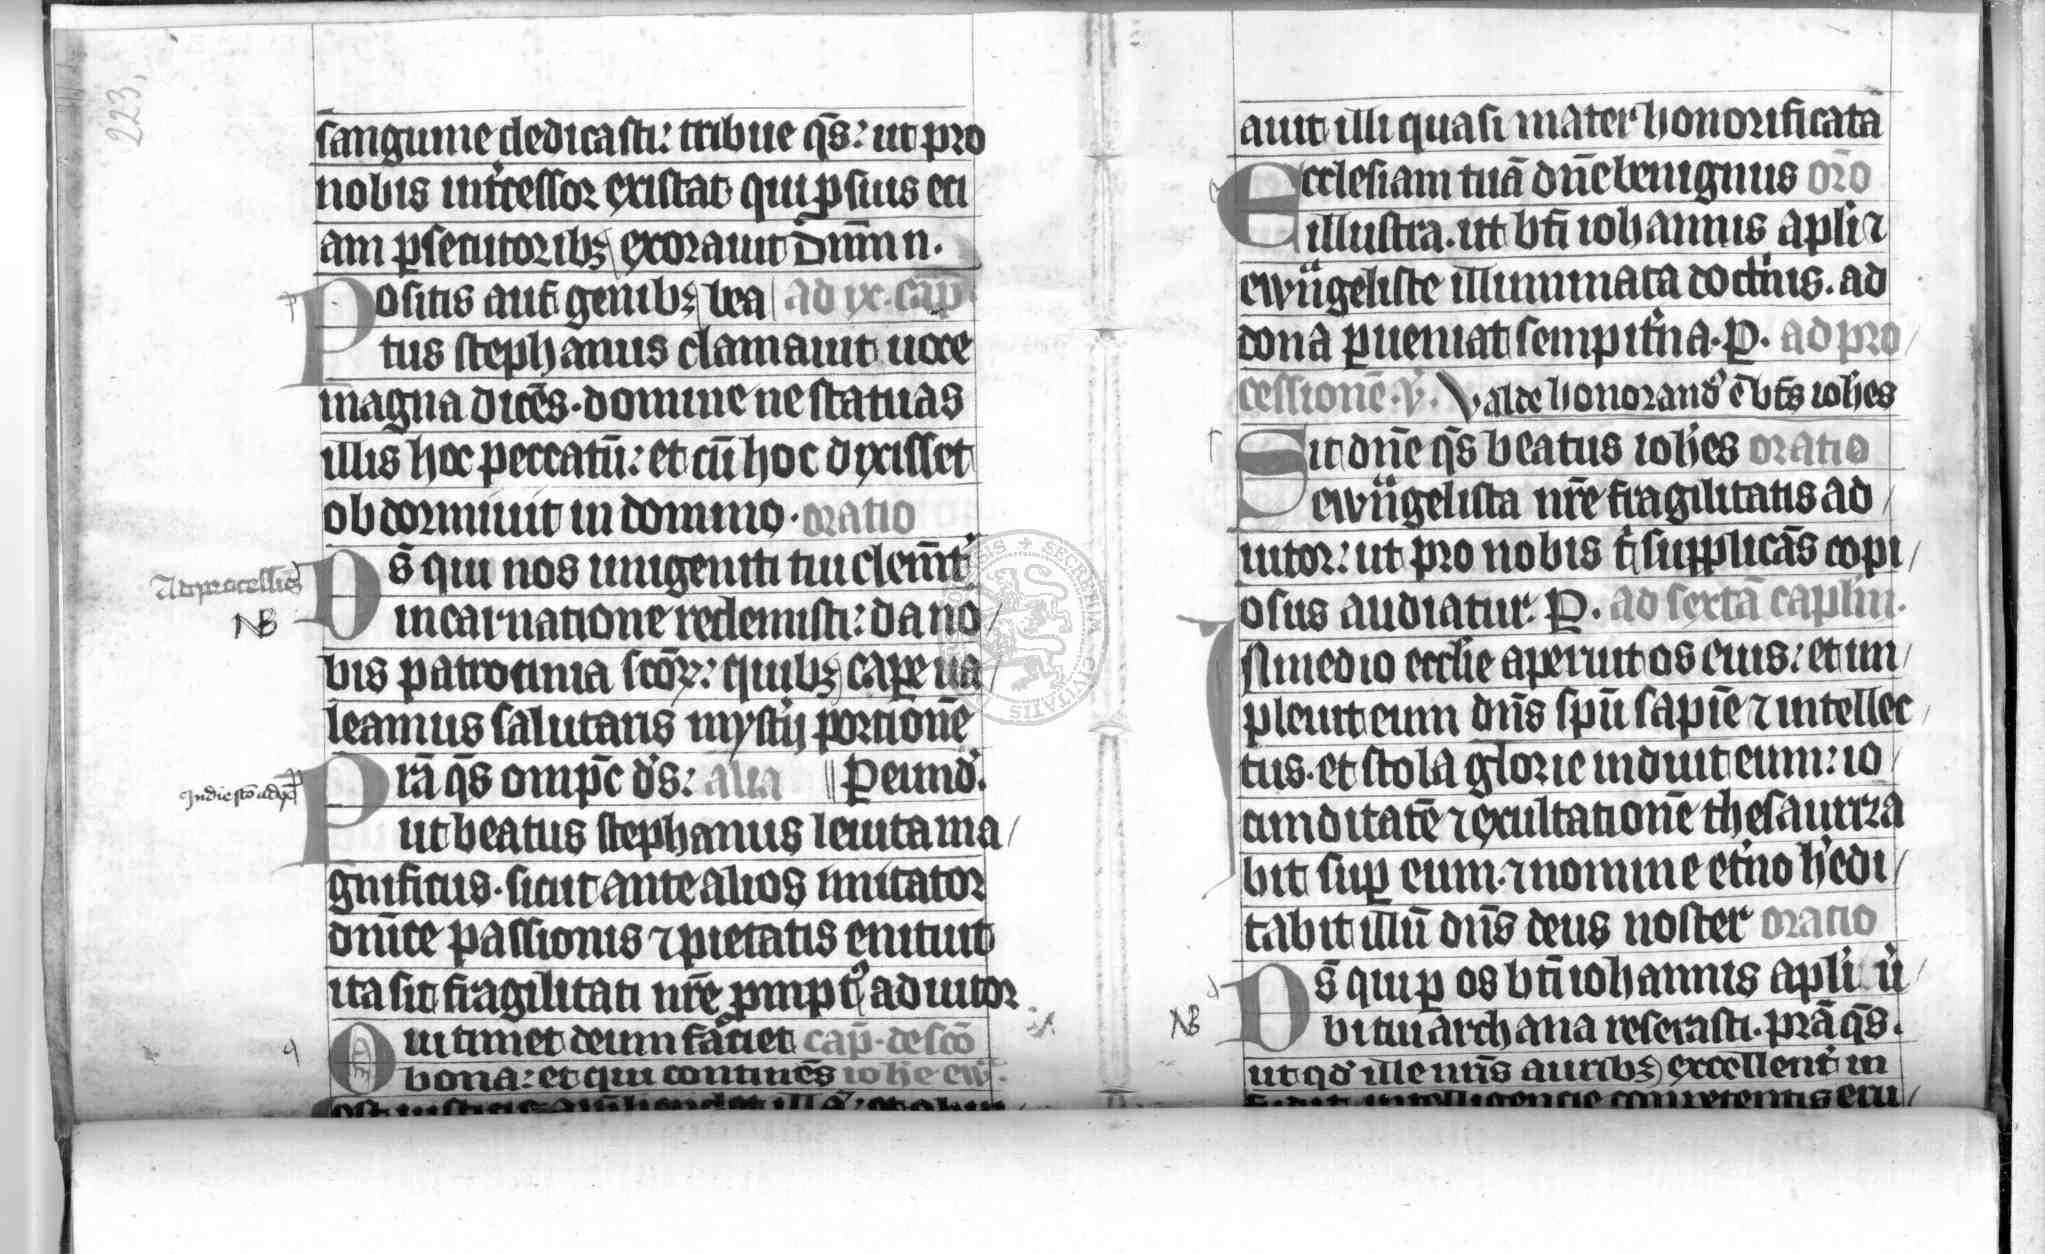 223,
sanguine dedicasti: tribue q̄s: ut pro
nobis int̉cessor existat qui ꝑ suis eci
am ꝑsecutoribꝫ exorauit Dn̄m n̄.
Positis aut̄ genibꝫ bea ad ix. cap̄
tus stephanus clamauit uoce
magna dicēs. domine ne statuas
illis hoc peccatū: et cū hoc dixisset
obdormiuit in domino. oratio
Ds̄ qui nos unigeniti tui clem̄t̉
incarnatione redemisti: da no
bis patrocinia sc̄oꝝ: quibꝫ cape ua
leamus salutaris mystĳ portionē
Ad processiōē
NB
Prā q̄s omp̄c ds̄: alia Peund̉.
ut beatus stephanus leuita ma
gnificus. sicut ante alios imitator
dn̄ice passionis ⁊ pietatis enituit
ita sit fragilitati nr̄e ꝓmpt᷒ adiutor
Qui timet deum faciet cap̄. de sc̄o
bona: et qui continēs ioh̄e ew̄.
auit illi quasi mater honorificata
Ecclesiam tuā dn̄e benignus or̄o
illustra. ut bt̄i iohannis apl̄i ⁊
ewūgeliste illuminata doct̉nis. ad
dona ꝑueniat sempit̉na. P. ad pro
cessionē. v̉. Valde honorand᷒ ē bt̄s ioh̄es
Sit dn̄e q̄s beatus ioh̄es oratio
ewūgelista nr̄e fragilitatis ad
iutor: ut pro nobis t̉ supplicās copi
osus audiatur. P. ad sextā caplm̄.
In medio eccl̄ie aperuit os eius: et im
pleuit eum dn̄s sp̄u sapiē ⁊ intellec
tus. et stola glorie induit eum: io
cunditatē ⁊ exultationē thesauriza
bit suꝑ eum. ⁊ nomine et̉no h̉edi
tabit illū dn̄s deus noster oratio
Ds̄ qui ꝑ os bt̄i iohannis apl̄i ů
NB
bi tui archana reserasti. prā q̄s.
ut qd̉ ille nr̄is auribꝫ excellent̉ in